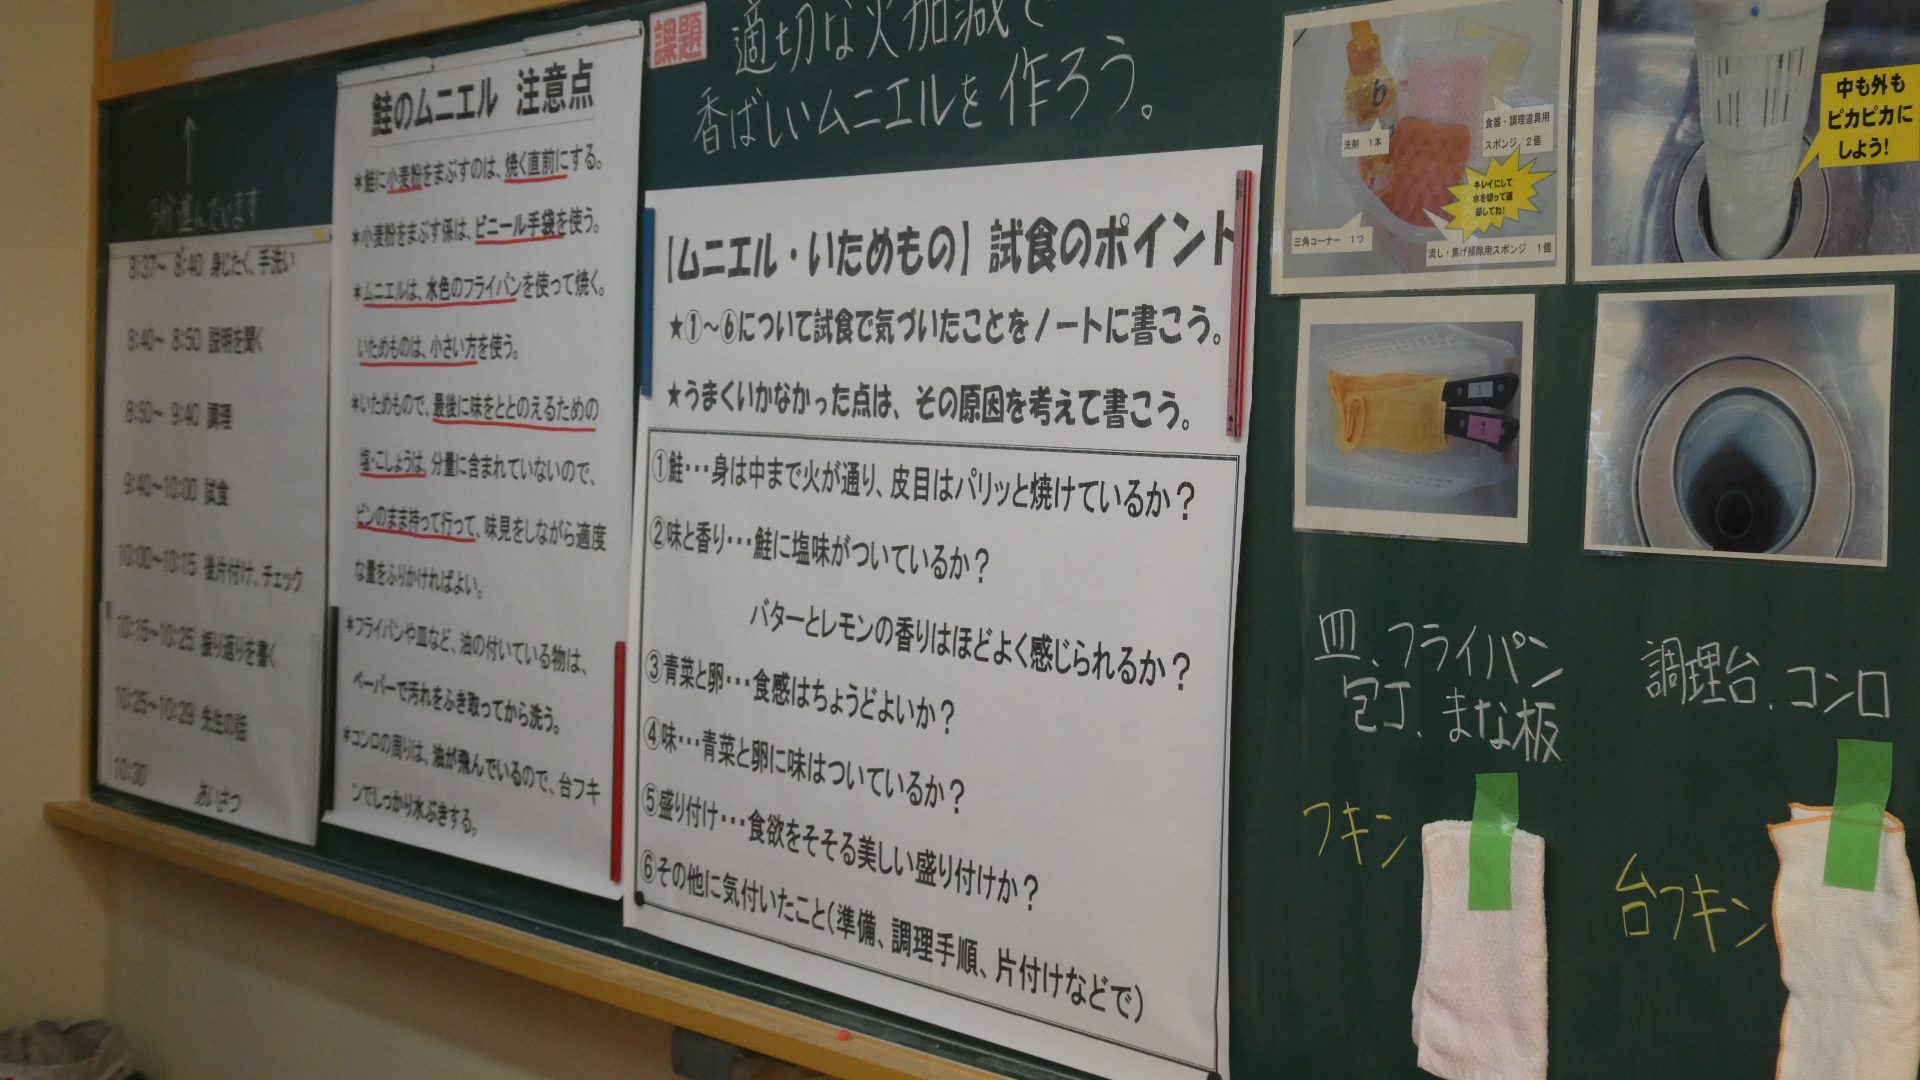 課題
適切な火加減で
香ばしいムニエルを作ろう。
3分進んでいます
8:37～8:40 身じたく、手洗い
8:40～8:50 説明を聞く
8:50～9:40 調理
9:40～10:00 試食
10:00～10:15 後片付け、チェック
10:15～10:25 振り返りを書く
10:25～10:29 先生の話
10:30 あいさつ
鮭のムニエル 注意点
*鮭に小麦粉をまぶすのは、焼く直前にする。
*小麦粉をまぶす係は、ビニール手袋を使う。
*ムニエルは、水色のフライパンを使って焼く。
いためものは、小さい方を使う。
*いためもので、最後に味をととのえるための
塩・こしょうは、分量に含まれていないので、
ビンのまま持って行って、味見をしながら適度
な量をふりかければよい。
*フライパンや皿など、油の付いている物は、
ペーパーで汚れをふき取ってから洗う。
*コンロの周りは、油が飛んでいるので、台フキ
ンでしっかり水ぶきする。
【ムニエル・いためもの】試食のポイント
★①～⑥について試食で気づいたことをノートに書こう。
★うまくいかなかった点は、その原因を考えて書こう。
①鮭･･･身は中まで火が通り、皮目はパリッと焼けているか？
②味と香り･･･鮭に塩味がついているか？
バターとレモンの香りはほどよく感じられるか？
③青菜と卵･･･食感はちょうどよいか？
④味･･･青菜と卵に味はついているか？
⑤盛り付け･･･食欲をそそる美しい盛り付けか？
⑥その他に気付いたこと(準備、調理手順、片付けなどで)
洗剤 1本
食器・調理道具用
スポンジ 2個
キレイにして
水を切って返
却してね！
三角コーナー 1つ
流し・焦げ掃除用スポンジ 1個
中も外も
ピカピカに
しよう！
1
1
皿、フライパン
包丁、まな板
フキン
調理台、コンロ
台フキン